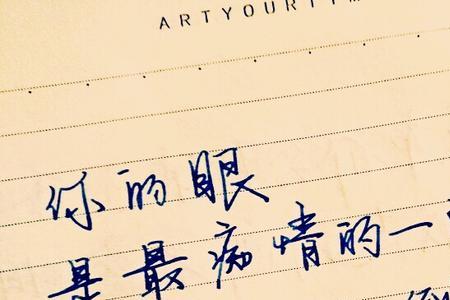 ARTYOURTIM
你的眼
是最痴情的一